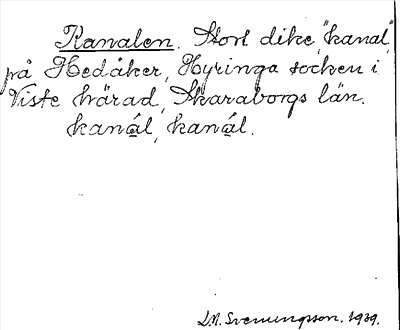 Kanalen. Stort dike, "kanal",
på Hedåker, Hyringa socken i
Viste härad, Skaraborgs län.
kanál, kanál.
L.M. Svenungsson. 1939.